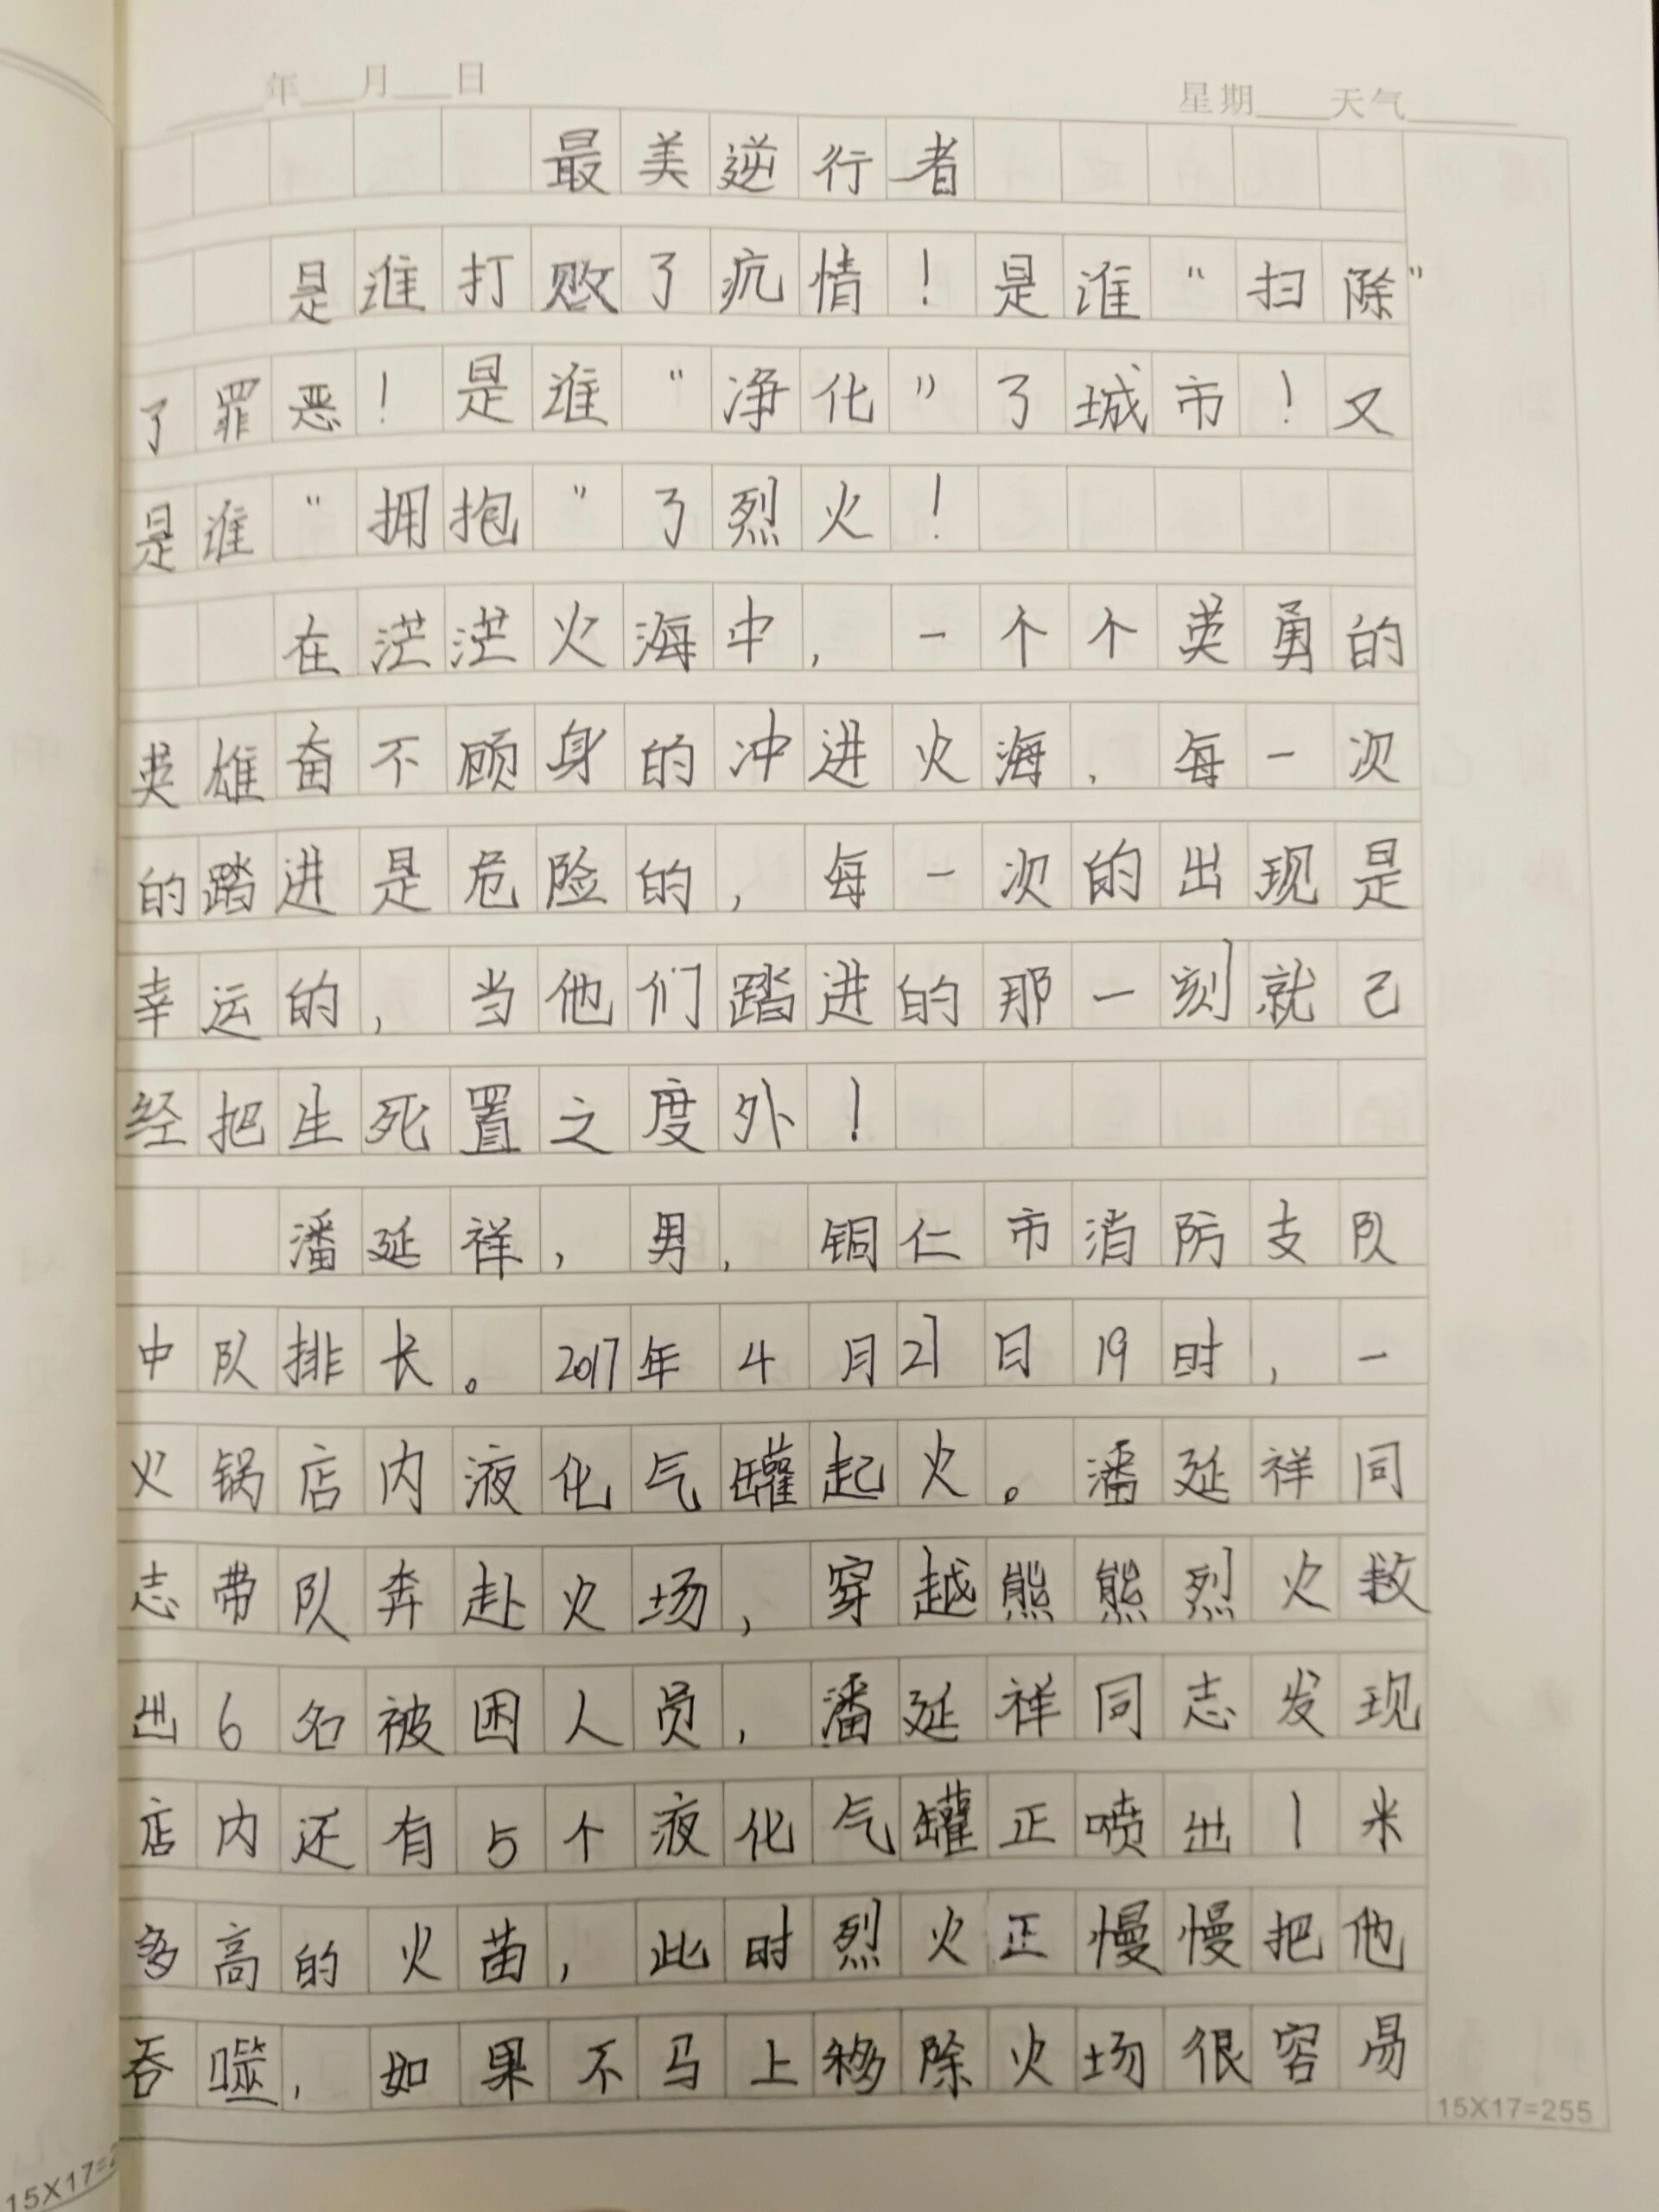 年 月 日 星期 天气
最美逆行者
是谁打败了疫情！是谁“扫除”
了罪恶！是谁“净化”了城市！又
是谁“拥抱”了烈火！
在茫茫火海中，一个个英勇的
英雄奋不顾身的冲进火海，每一次
的踏进是危险的，每一次的出现是
幸运的，当他们踏进的那一刻就已
经把生死置之度外！
潘延祥，男，铜仁市消防支队
中队排长。2017年4月21日19时，一
火锅店内液化气罐起火。潘延祥同
志带队奔赴火场，穿越熊熊烈火救
出6名被困人员，潘延祥同志发现
店内还有5个液化气罐正喷出1米
多高的火苗，此时烈火正慢慢把他
吞噬，如果不马上移除火场很容易
15X17=255
15X17=